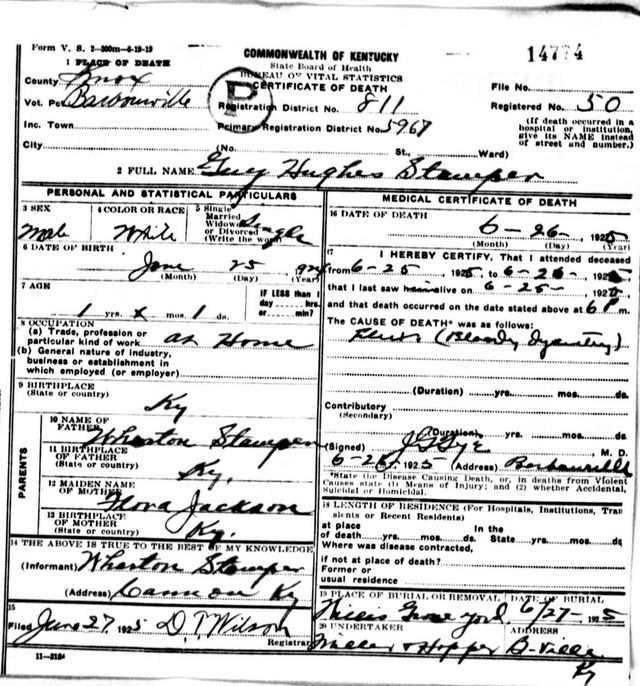 Form V. S. 2-300m-6-19-19
14774
1 PLACE OF DEATH
COMMONWEALTH OF KENTUCKY
State Board of Health
BUREAU OF VITAL STATISTICS
CERTIFICATE OF DEATH
County Knox
File No.
Vot. Pct Barbourville
P
Registration District No. 811
Registered No. 50
Inc. Town
Primary Registration District No. 5967
(If death occurred in a hospital or institution, give its NAME instead of street and number.)
City (No. St., Ward)
2 FULL NAME Guy Hughes Stamper
PERSONAL AND STATISTICAL PARTICULARS
3 SEX
Male
4 COLOR OR RACE
White
5 Single
Married
Widowed
or Divorced
(Write the word)
Single
6 DATE OF BIRTH
June 25 1924
(Month) (Day) (Year)
7 AGE
1 yrs. x mos. 1 ds.
IF LESS than 1
day hrs.
or min.?
8 OCCUPATION
(a) Trade, profession or
particular kind of work at Home
(b) General nature of industry,
business or establishment in
which employed (or employer)
9 BIRTHPLACE
(State or country)
Ky
PARENTS
10 NAME OF
FATHER
Wharton Stamper
11 BIRTHPLACE
OF FATHER
(State or country)
Ky.
12 MAIDEN NAME
OF MOTHER
Flora Jackson
13 BIRTHPLACE
OF MOTHER
(State or country)
Ky.
14 THE ABOVE IS TRUE TO THE BEST OF MY KNOWLEDGE
(Informant) Wharton Stamper
(Address) Cannon Ky
15
Filed June 27, 1925 D. T. Wilson
Registrar
11-3184
MEDICAL CERTIFICATE OF DEATH
16 DATE OF DEATH
6-26-, 1925
(Month) (Day) (Year)
17
I HEREBY CERTIFY, That I attended deceased
from 6-25, 1925, to 6-26-, 1925
that I last saw him alive on 6-25-, 1925,
and that death occurred on the date stated above at 6 P m.
The CAUSE OF DEATH* was as follows:
(Bloody Dysentery)
(Duration) yrs. mos. ds.
Contributory
(Secondary)
(Duration) yrs. mos. ds.
(Signed) M. D.
6-26, 1925 (Address) Barbourville
*State the Disease Causing Death, or, in deaths from Violent
Causes state (1) Means of Injury; and (2) whether Accidental,
Suicidal or Homicidal.
18 LENGTH OF RESIDENCE (For Hospitals, Institutions, Tran
sients or Recent Residents)
at place In the
of death yrs. mos. ds. State yrs. mos. ds
Where was disease contracted,
if not at place of death?
Former or
usual residence
19 PLACE OF BURIAL OR REMOVAL
DATE OF BURIAL
Grave yard 6/27-, 1925
20 UNDERTAKER
ADDRESS
Miller & Hopper B-Ville
Ky